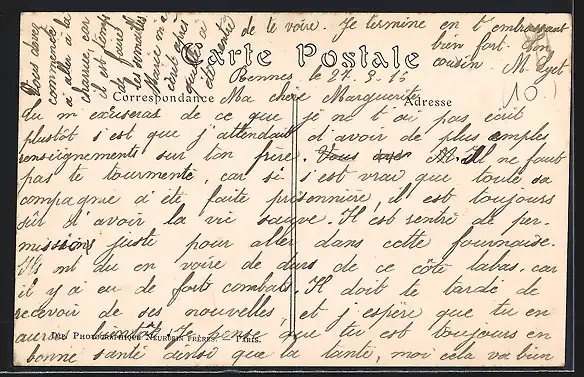 Carte Postale
Correspondance
Adresse
Rennes le 27. 9. 15
Ma chère Marguerite
Tu m'excuseras de ce que je ne t'ai pas écrit
plustôt s'est que j'attendais d'avoir de plus amples
renseignements sur ton frère. M. Il ne faut
pas te tourmenté, car si s'est vrai que toute sa
compagnie a été faite prisonnière, il est toujours
sûr d'avoir la vie sauve. Il est rentré de per-
missions juste pour aller dans cette fournaise.
Ils ont du en voire de durs de ce côté labas, car
il y a eu de fort combats. Il doit te tardé de
recevoir de ses nouvelles, et j'espère que tu en
auras bientôt. Je pense que tu est toujours en
bonne santé ainsi que la tante, moi cela va bien
Vous devez
commencé
a allez à la
charrue, car
il est temps
de faire
les semailles
Marie m'a
écrit après
quelle a
été rentré
de te voire. Je termine en t'embrassant
bien fort ton
cousin M.
(10)
Imp. Photographique Neurdein Frères. — Paris.